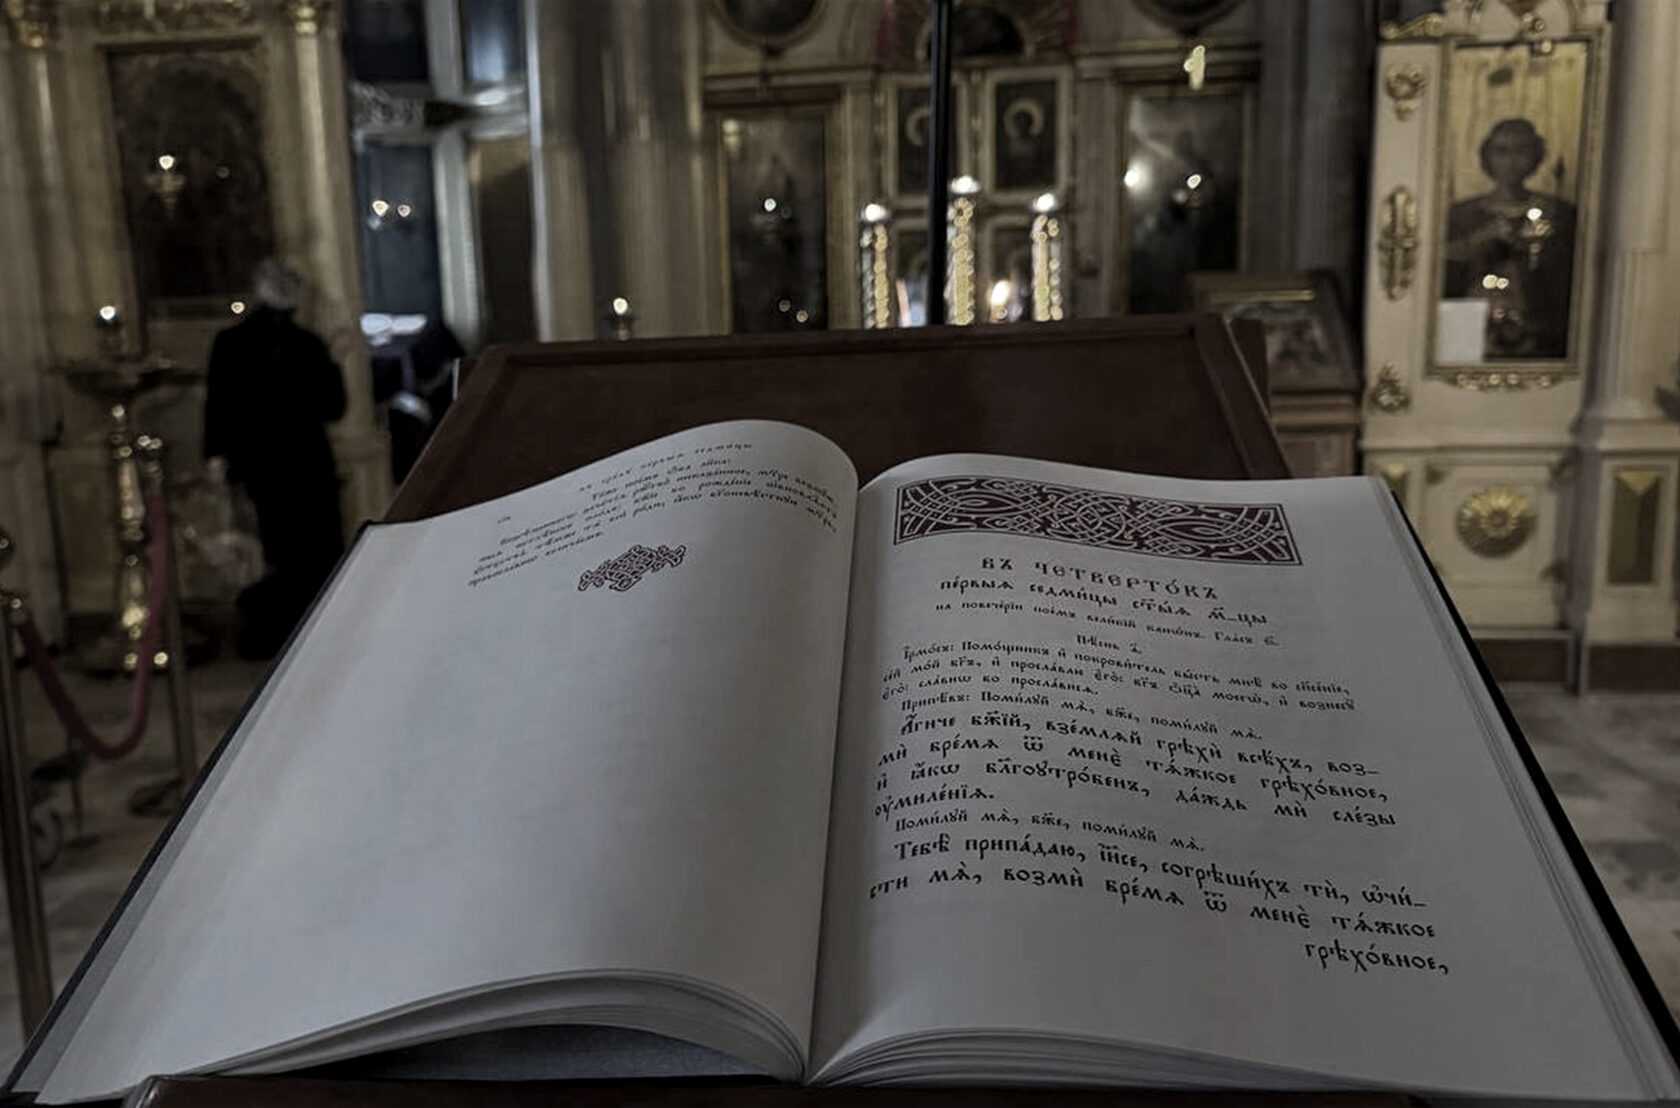 въ средꙋ первыѧ седмицы
Въ четверто́къ
пе́рвыѧ седми́цы ст҃ы́ѧ м҃-цы
на повече́рїи пое́мъ вели́кїй канѡ́нъ. Гла́съ ѕ҃.
Пѣ́снь а҃.
І҆рмо́съ: Помо́щникъ и҆ покрови́тель бы́сть мнѣ̀ во сп҃се́нїе,
се́й мо́й бг҃ъ, и҆ просла́влю є҆го̀: бг҃ъ ѻ҆ц҃а̀ моегѡ̀, и҆ вознесꙋ̀
є҆го̀: сла́внѡ бо просла́висѧ.
Припѣ́въ: Поми́лꙋй мѧ̀, бж҃е, поми́лꙋй мѧ̀.
А҆́гнче бж҃їй, взе́млѧй грѣхѝ всѣ́хъ, воз-
мѝ бре́мѧ ѿ менє̀ тѧ́жкое грѣхо́вное,
и҆ ꙗ҆́кѡ бл҃гоꙋтро́бенъ, да́ждь мѝ сле́зы
ᲂу҆миле́нїѧ.
Поми́лꙋй мѧ̀, бж҃е, поми́лꙋй мѧ̀.
Тебѣ̀ припа́даю, і҆и҃се, согрѣши́хъ тѝ, ѡ҆чи́-
сти мѧ̀, возмѝ бре́мѧ ѿ менє̀ тѧ́жкое
грѣхо́вное,